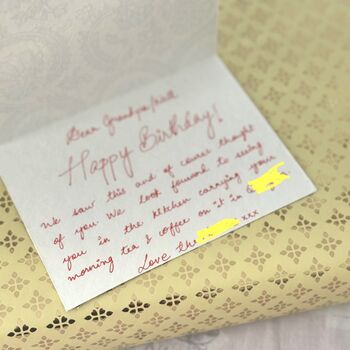 Dear Grandpa/
Happy Birthday!
We saw this and of course thought
of you. We look forward to seeing
you in the kitchen carrying your
morning tea & coffee on it in
Love the xxx